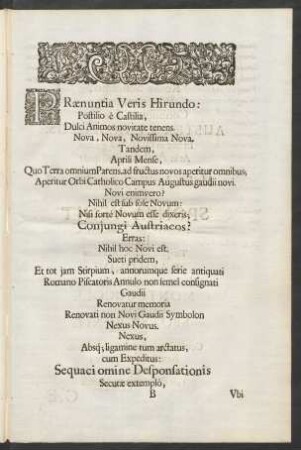 PRænuntia Veris Hirundo:
Postilio è Castilia,
Dulci Animos novitate tenens.
Nova, Nova, Novissima Nova,
Tandem,
Aprili Mense,
Quo Terra omnium Parens, ad fructus novos aperitur omnibus,
Aperitur Orbi Catholico Campus Augustus gaudii novi.
Novi enimvero?
Nihil est sub sole Novum:
Nisi fortè Novum esse dixeris;
Conjungi Austriacos?
Erras:
Nihil hoc Novi est.
Sueti pridem,
Et tot jam Stirpium, annorumque serie antiquati
Romano Piscatoris Annulo non semel consignati
Gaudii
Renovatur memoria
Renovati non Novi Gaudii Symbolon
Nexus Novus.
Nexus,
Absq; ligamine tum arctatus,
cum Expeditus:
Sequaci omine Desponsationis
Secutæ extemplò,
B Vbi